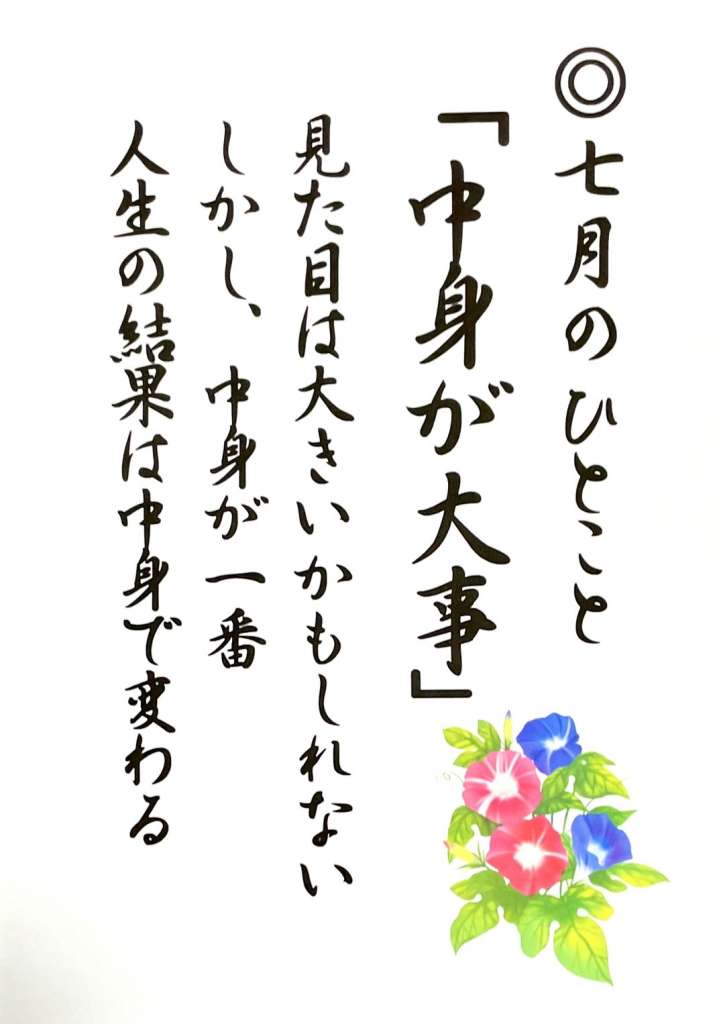 ◎七月のひとこと
「中身が大事」
見た目は大きいかもしれない
しかし、中身が一番
人生の結果は中身で変わる